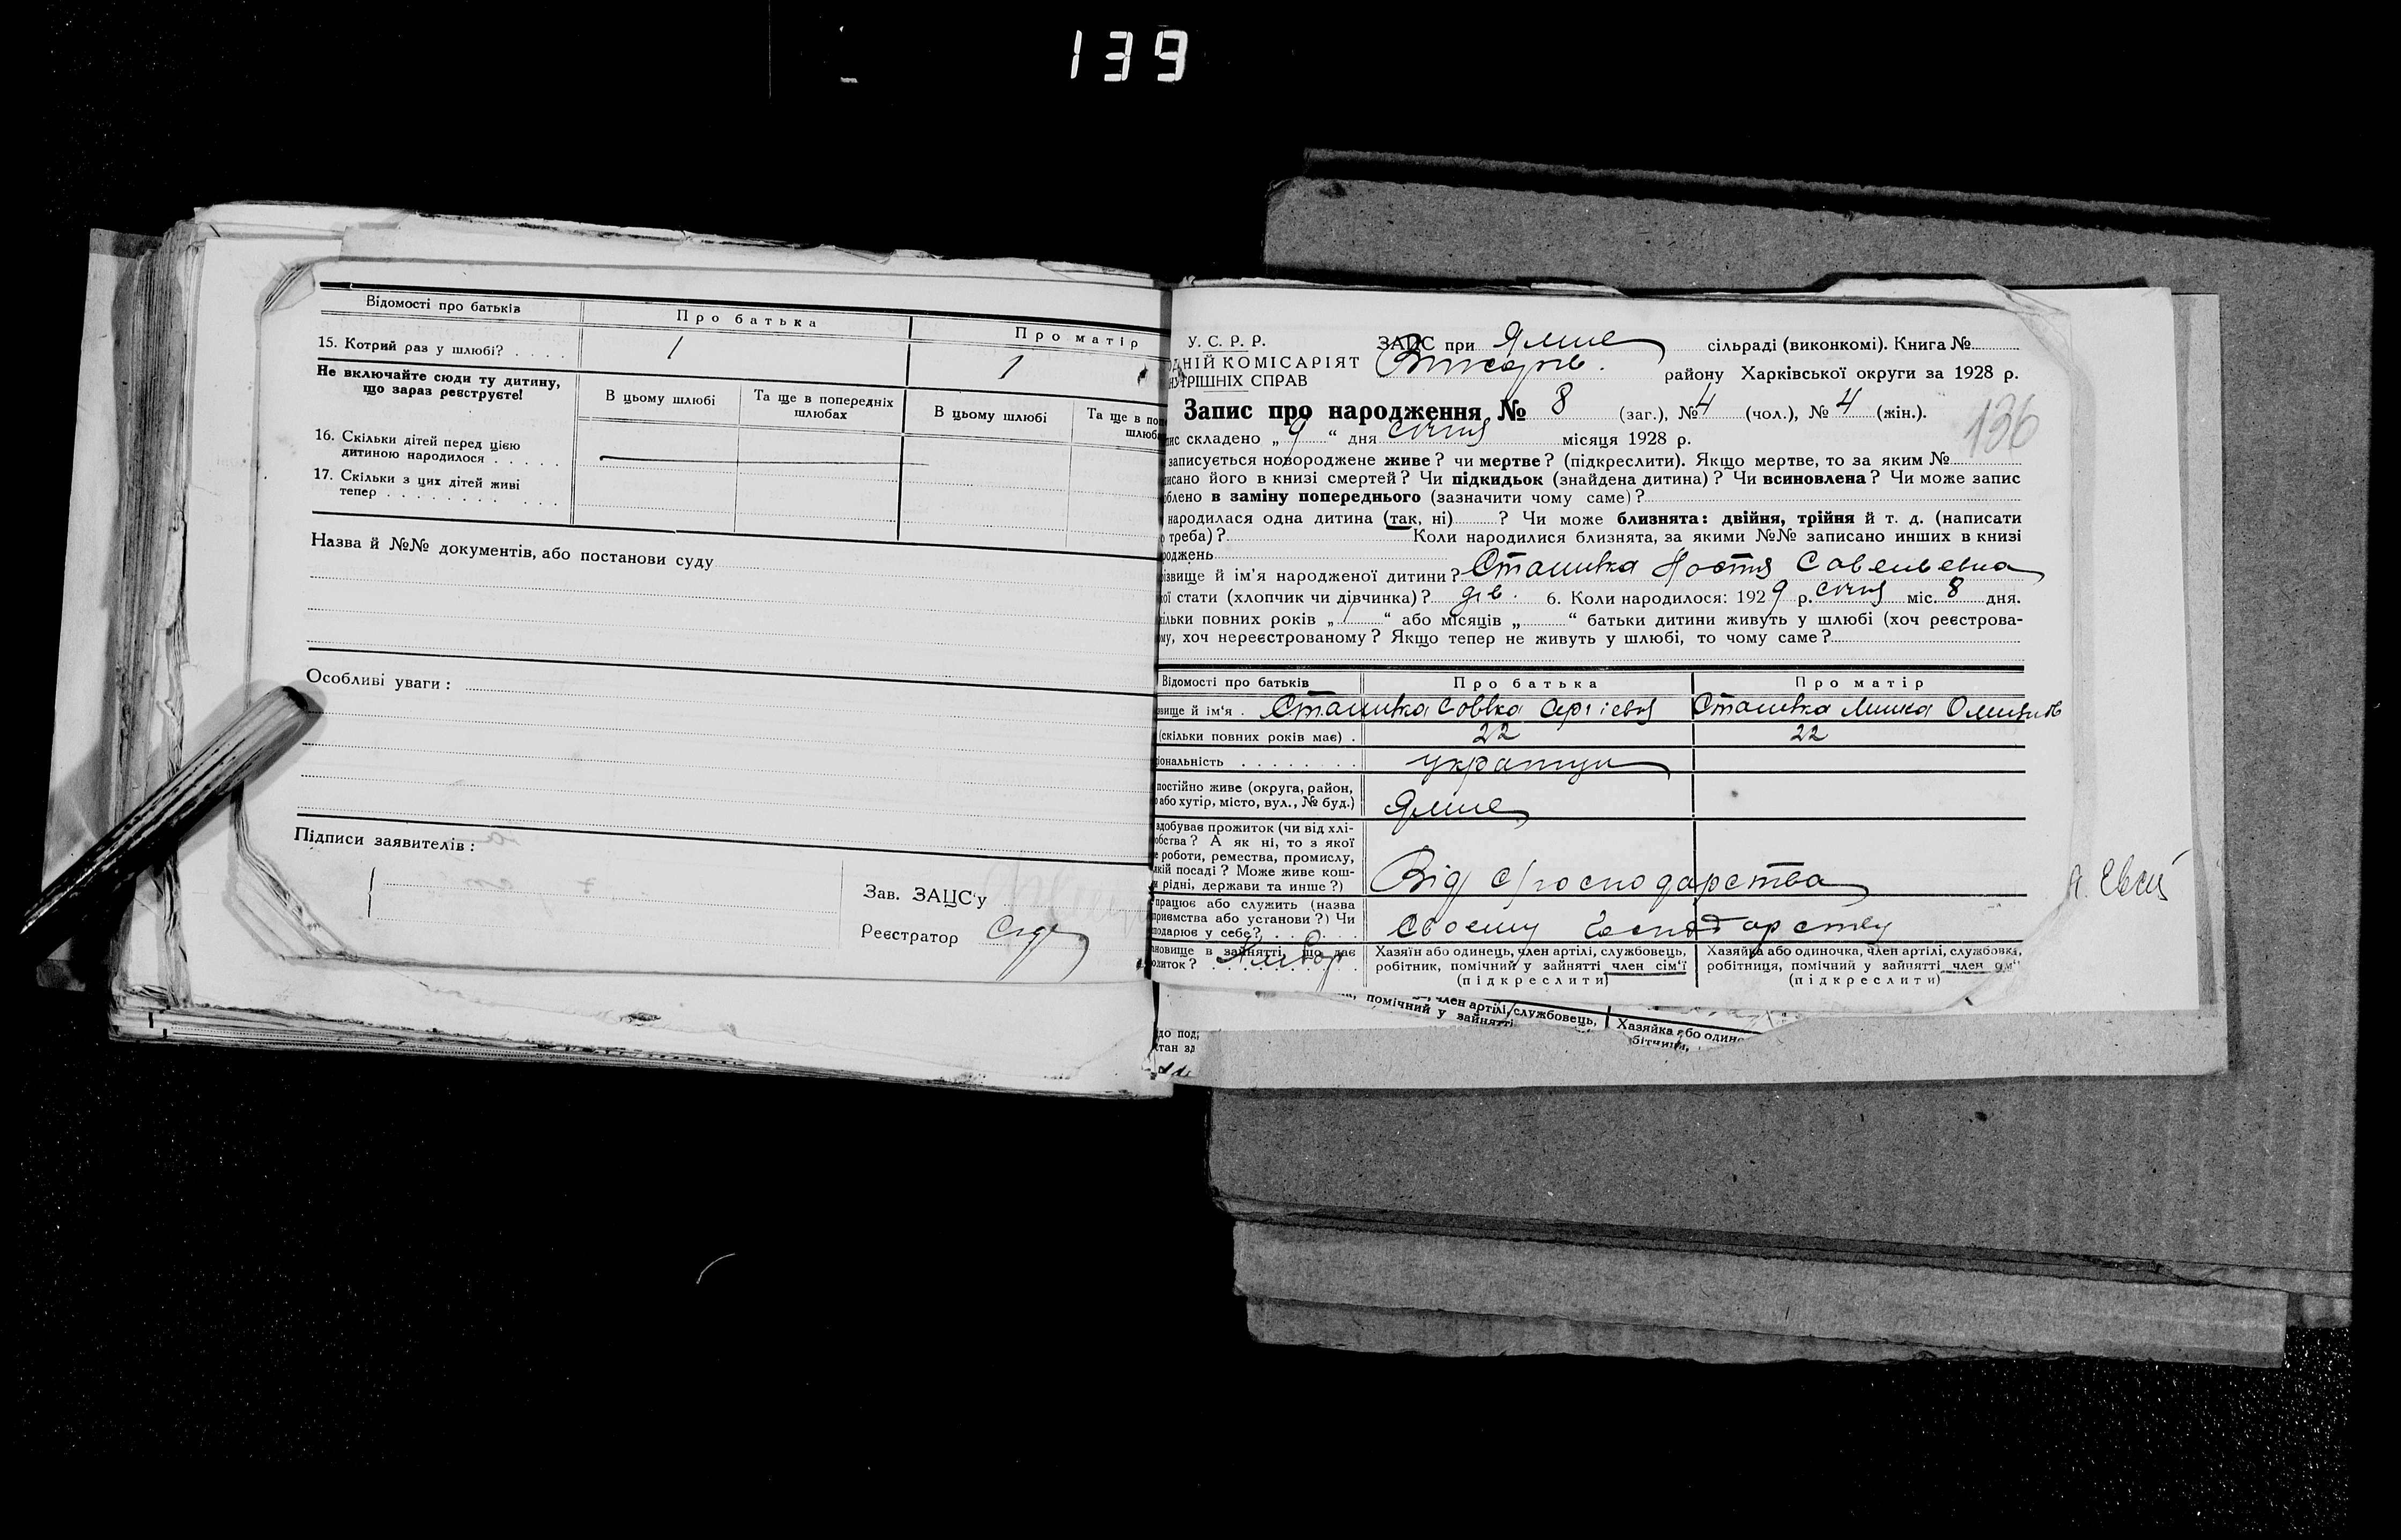 139
Відомості про батьків
Про батька
Про матір
15. Котрий раз у шлюбі? . . . .
1
1
Не включайте сюди ту дитину,
що зараз реєструєте!
В цьому шлюбі
Та ще в попередніх
шлюбах
В цьому шлюбі
Та ще в поп
шлюб
16. Скільки дітей перед цією
дитиною народилося . . . . .
17. Скільки з цих дітей живі
тепер . . . . . . . . . . .
Назва й №№ документів, або постанови суду
Особливі уваги :
Підписи заявителів :
Зав. ЗАЦС'у
Реєстратор
У. С. Р. Р.
ДНІЙ КОМІСАРІЯТ
НУТРІШНІХ СПРАВ
ЗАЦС при сільраді (виконкомі). Книга №
району Харківської округи за 1928 р.
Запис про народження № 8 (заг.), № 4 (чол.), № 4 (жін.).
136
пис складено „ 9 “ дня січня місяця 1928 р.
записується новороджене живе? чи мертве? (підкреслити). Якщо мертве, то за яким №
писано його в книзі смертей? Чи підкидьок (знайдена дитина)? Чи всиновлена? Чи може запис
облено в заміну попереднього (зазначити чому саме)?
народилася одна дитина (так, ні) ? Чи може близнята: двійня, трійня й т. д. (написати
о треба)? Коли народилися близнята, за якими №№ записано инших в книзі
роджень
ізвище й ім'я народженої дитини? Сташвка Настя Савельевна
кої стати (хлопчик чи дівчинка)? дів. 6. Коли народилося: 1929 р. січня міс. 8 дня.
кільки повних років „ 1 “ або місяців „ “ батьки дитини живуть у шлюбі (хоч реєстрова-
му, хоч нереєстрованому? Якщо тепер не живуть у шлюбі, то чому саме?
Відомості про батьків
Про батька
Про матір
звище й ім'я .
(скільки повних років має) .
22
22
ціональність . . . . . . . .
постійно живе (округа, район,
о або хутір, місто, вул., № буд.)
здобуває прожиток (чи від хлі-
обства? А як ні, то з якої
е роботи, ремества, промислу,
якій посаді? Може живе кош-
и рідні, держави та инше?)
Від с/господарства
працює або служить (назва
приємства або установи?) Чи
подарює у себе? . . . . . .
Своєму господарству
ановище в зайнятті, що дає
житок? . . . . . . . . .
Хазяїн або одинець, член артілі, службовець,
робітник, помічний у зайнятті член сім'ї
(підкреслити)
Хазяйка або одиночка, член артілі, службовка,
робітниця, помічний у зайнятті член сім'ї
(підкреслити)
член артілі, службовець,
помічний у зайнятті
Хазяйка або один
бітниця,
до под
стан зд